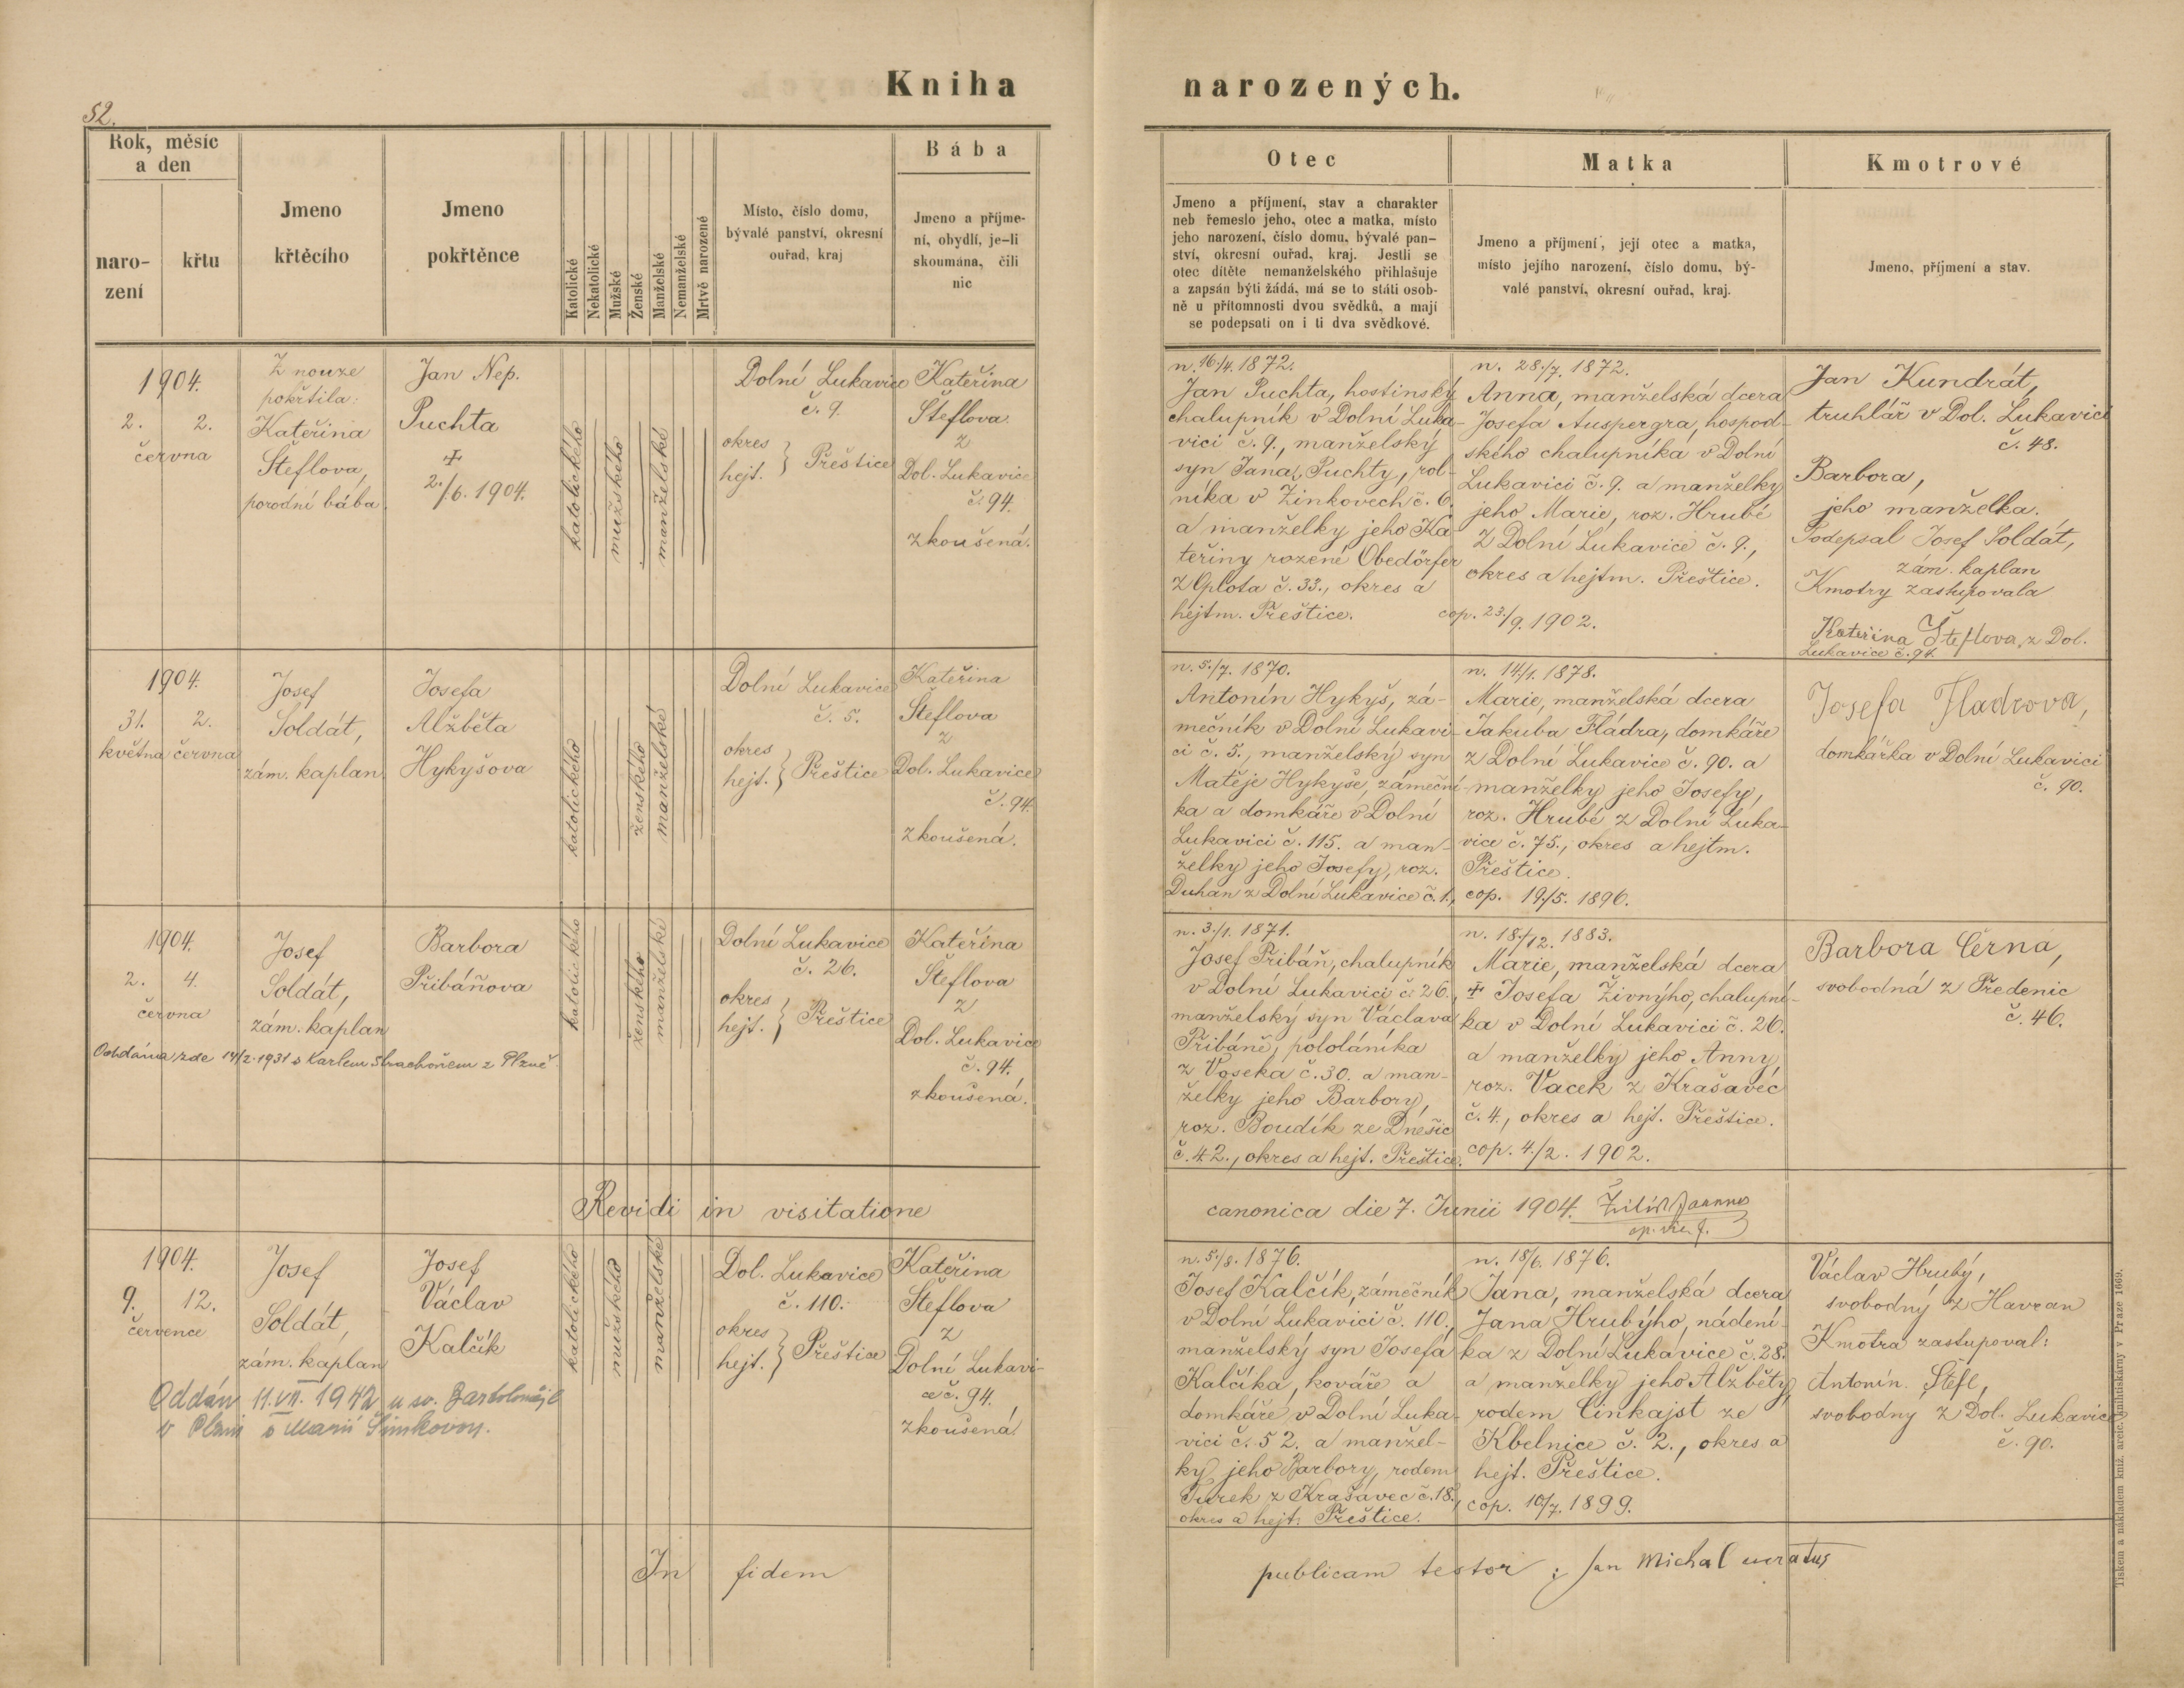 52.
Kniha narozených.
Rok, měsíc
a den
naro-
zení
křtu
Jmeno
křtěcího
Jmeno
pokřtěnce
Katolické
Nekatolické
Mužské
Ženské
Manželské
Nemanželské
Mrtvě narozené
Místo, číslo domu,
bývalé panství, okresní
ouřad, kraj
Bába
Jmeno a příjme-
ní, obydlí, je-li
skoumána, čili
nic
Otec
Jmeno a příjmení, stav a charakter
neb řemeslo jeho, otec a matka, místo
jeho narození, číslo domu, bývalé pan-
ství, okresní ouřad, kraj. Jestli se
otec dítěte nemanželského přihlašuje
a zapsán býti žádá, má se to státi osob-
ně u přítomnosti dvou svědků, a mají
se podepsati on i ti dva svědkové.
Matka
Jmeno a příjmení, její otec a matka,
místo jejího narození, číslo domu, bý-
valé panství, okresní ouřad, kraj.
Kmotrové
Jmeno, příjmení a stav.
1904.
2. 2.
června
Z nouze
pokřtila:
Kateřina
Šteflova,
porodní bába
Jan Nep.
Puchta
✝
2./6. 1904.
katolického
mužského
manželské
Dolní Lukavice
č. 9.
okres
hejt. } Přeštice
Kateřina
Šteflova
z
Dol. Lukavice
č. 94.
zkoušená.
n. 16./4. 1872.
Jan Puchta, hostinský
chalupník v Dolní Luka-
vici č. 9., manželský
syn Jana Puchty, rol-
níka v Žinkovech č. 6.
a manželky jeho Ka-
teřiny rozené Obedörfer
z Oplota č. 33., okres a
hejtm. Přeštice.
n. 28./7. 1872.
Anna, manželská dcera
Josefa Auspergra, hospod-
ského chalupníka v Dolní
Lukavici č. 9. a manželky
jeho Marie, roz. Hrubé
z Dolní Lukavice č. 9.,
okres a hejtm. Přeštice.
cop. 23./9. 1902.
Jan Kundrát,
truhlář v Dol. Lukavici
č. 48.
Barbora,
jeho manželka.
Podepsal Josef Soldát,
zám. kaplan
Kmotry zastupovala
Kateřina Šteflova, z Dol.
Lukavice č. 94.
1904.
31. 2.
května června
Josef
Soldát,
zám. kaplan
Josefa
Alžběta
Hykyšova
katolického
ženského
manželské
Dolní Lukavice
č. 5.
okres
hejt. } Přeštice
Kateřina
Šteflova
z
Dol. Lukavice
č. 94.
zkoušená.
n. 5./7. 1870.
Antonín Hykyš, zá-
mečník v Dolní Lukavi-
ci č. 5., manželský syn
Matěje Hykyše, zámeční-
ka a domkáře v Dolní
Lukavici č. 115. a man-
želky jeho Josefy, roz.
Duhan z Dolní Lukavice č. 1.,
n. 14/1. 1878.
Marie, manželská dcera
Jakuba Fládra, domkáře
z Dolní Lukavice č. 90. a
manželky jeho Josefy,
roz. Hrubé z Dolní Luka-
vice č. 75., okres a hejtm.
Přeštice.
cop. 19./5. 1896.
Josefa Fladrova,
domkářka v Dolní Lukavici
č. 90.
1904.
2. 4.
června
Josef
Soldát,
zám. kaplan
Barbora
Přibáňova
Oddána zde 14/2. 1931 s Karlem Strachoněm z Plzně
katolického
ženského
manželské
Dolní Lukavice
č. 26.
okres
hejt. } Přeštice
Kateřina
Šteflova
z
Dol. Lukavice
č. 94.
zkoušená.
n. 3./1. 1871.
Josef Přibáň, chalupník
v Dolní Lukavici č. 26.,
manželský syn Václava
Přibáně, pololáníka
z Voseka č. 30. a man-
želky jeho Barbory,
roz. Boudík ze Dnešic
č. 42., okres a hejt. Přeštice.
n. 18./12. 1883.
Marie, manželská dcera
✝ Josefa Živnýho, chalupní-
ka v Dolní Lukavici č. 26.
a manželky jeho Anny,
roz. Vacek z Krašavec
č. 4., okres a hejt. Přeštice.
cop. 4./2. 1902.
Barbora Černa,
svobodná z Předenic
č. 46.
Revidi in visitatione canonica die 7. Junii 1904.
1904.
9. 12.
července
Josef
Soldát,
zám. kaplan
Josef
Václav
Kalčík
Oddán 11.VII. 1942 u sv. Bartoloměje
v Plzni s Marií Šimkovou.
katolického
mužského
manželské
Dol. Lukavice
č. 110.
okres
hejt. } Přeštice
Kateřina
Šteflova
z
Dolní Lukavi-
ce č. 94.
zkoušená
n. 5./8. 1876.
Josef Kalčík, zámečník
v Dolní Lukavici č. 110.,
manželský syn Josefa
Kalčíka, kováře a
domkáře v Dolní Luka-
vici č. 52. a manžel-
ky jeho Barbory, rodem
Turek z Krašavec č. 18.,
okres a hejt. Přeštice.
n. 18/6. 1876.
Jana, manželská dcera
Jana Hrubýho, nádení-
ka z Dolní Lukavice č. 28.
a manželky jeho Alžběty,
rodem Cinkajst ze
Kbelnice č. 2., okres a
hejt. Přeštice.
cop. 10/7. 1899.
Václav Hrubý,
svobodný z Havran
Kmotra zastupoval:
Antonín Štefl,
svobodný z Dol. Lukavice
č. 90.
In fidem publicam testor: Jan Michal curatus
Tiskem a nákladem kníž. arcib. knihtiskárny v Praze 1669.